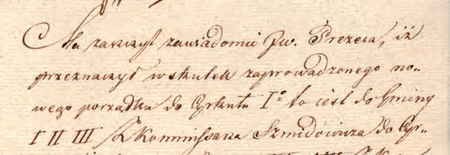 Ma zaszczyt zawiadomić Jw. Prezesa, iż
przeznaczył w skutek zaprowadzonego no-
wego porządku do Cyrkułu Iº to iest do Gminy
I II III Kommissarza Szmidowicza do Cyr-